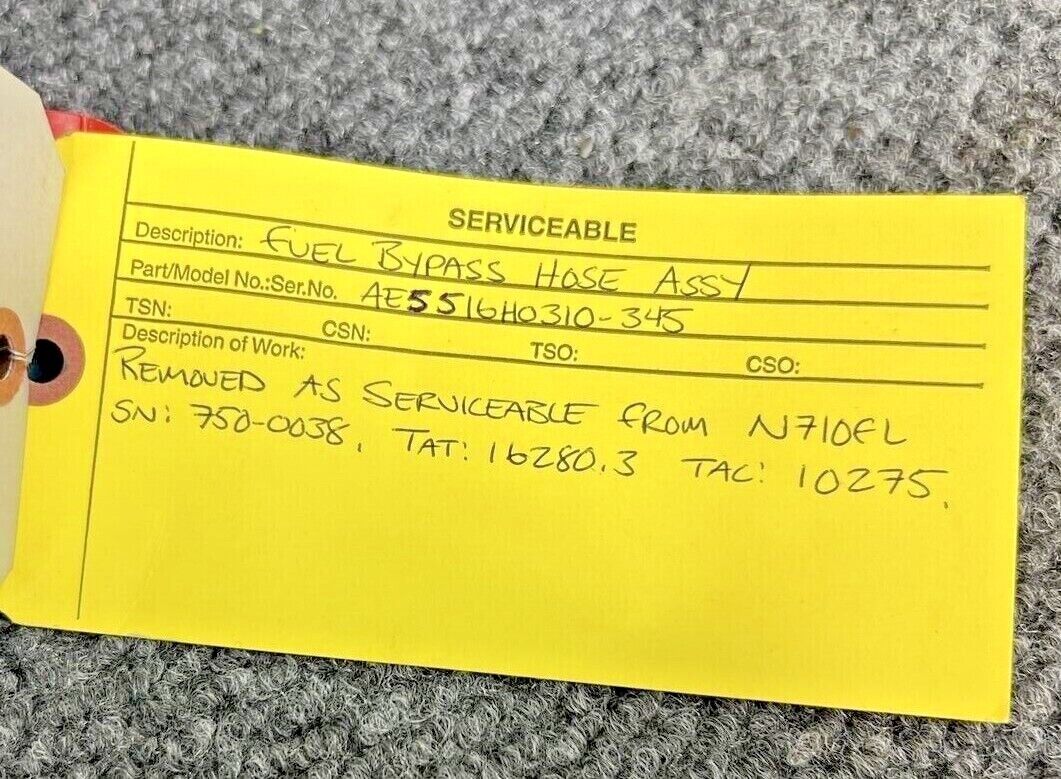 SERVICEABLE
Description: FUEL BYPASS HOSE ASSY
Part/Model No.:Ser.No. AE5516H0310-345
TSN: CSN: TSO: CSO:
Description of Work:
REMOVED AS SERVICEABLE FROM N710FL
SN: 750-0038. TAT: 16280.3 TAC: 10275.